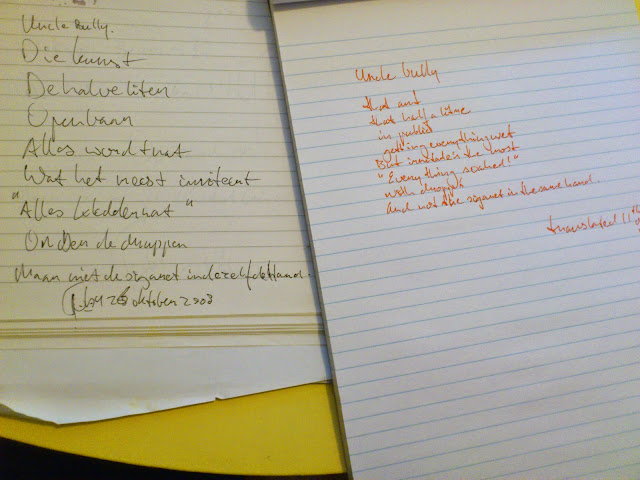 Uncle Bully.
Die kunst
De halve liten
Openbaar
Alles wordt nat
Wat het meest irriteert
"Alles kledder nat"
Onder de druppen
Maar niet de sigaret in dezelfde hand.
26 oktober 2003
Uncle bully
that art
that half a litre
in public
getting everything wet
But irritate's the most
"Everything soaked!"
with droppes
And not the sigaret in the same hand.
translated 11